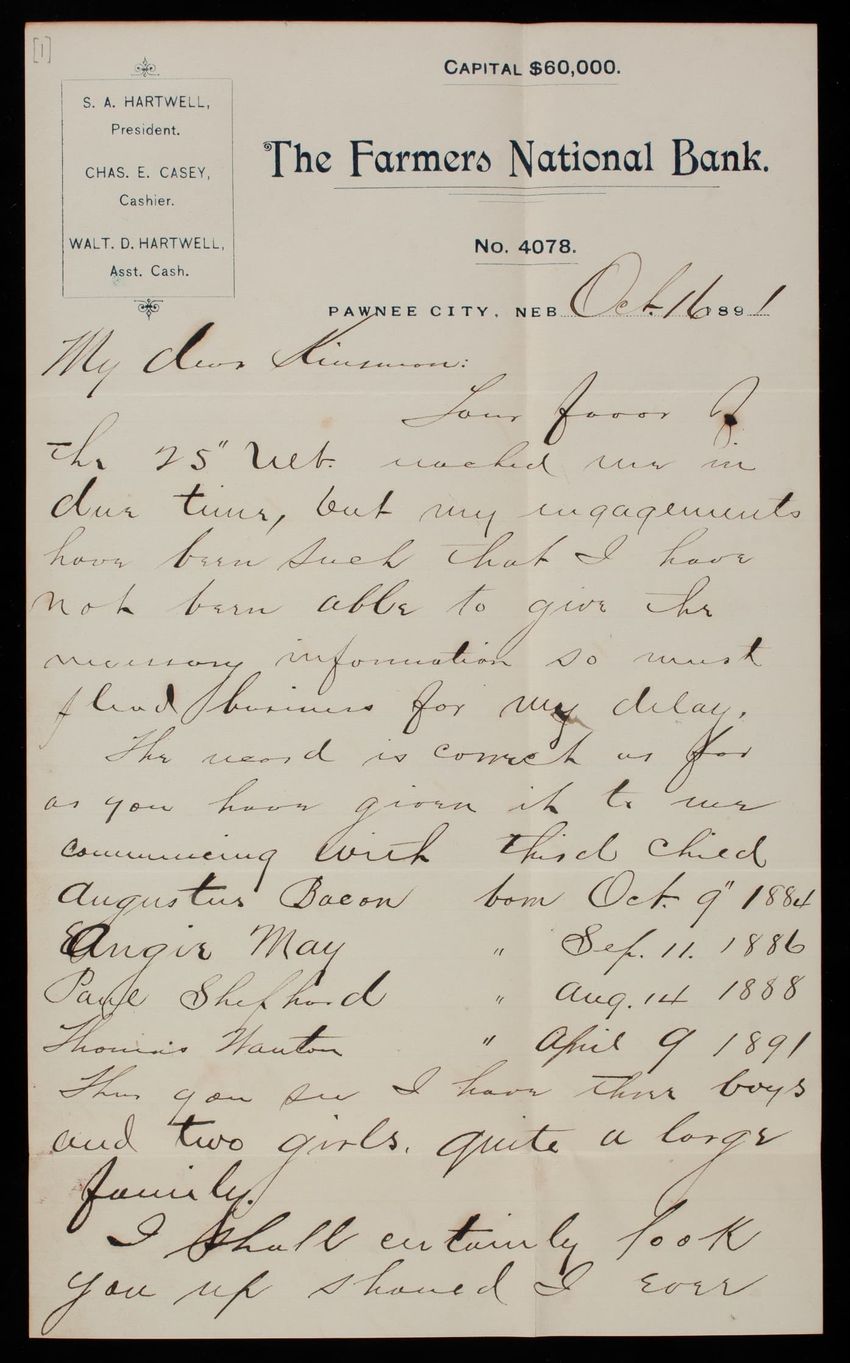 [1]
CAPITAL $60,000.
S. A. HARTWELL,
President.
CHAS. E. CASEY,
Cashier.
WALT. D. HARTWELL,
Asst. Cash.
The Farmers National Bank.
No. 4078.
PAWNEE CITY, NEB. Oct. 16 1891
My dear Kinsman:
Your favor of
the 25" Ult. reached me in
due time, but my engagements
have been such that I have
not been able to give the
necessary information so must
plead business for my delay.
The record is correct as far
as you have given it to me
commencing with third child
Augustus Bacon born Oct. 9" 1884
Angie May " Sep. 11. 1886
Paul Shephard " Aug. 14 1888
Thomas Wanton " April 9 1891
Thus you see I have three boys
and two girls. quite a large
family.
I shall certainly look
you up should I ever